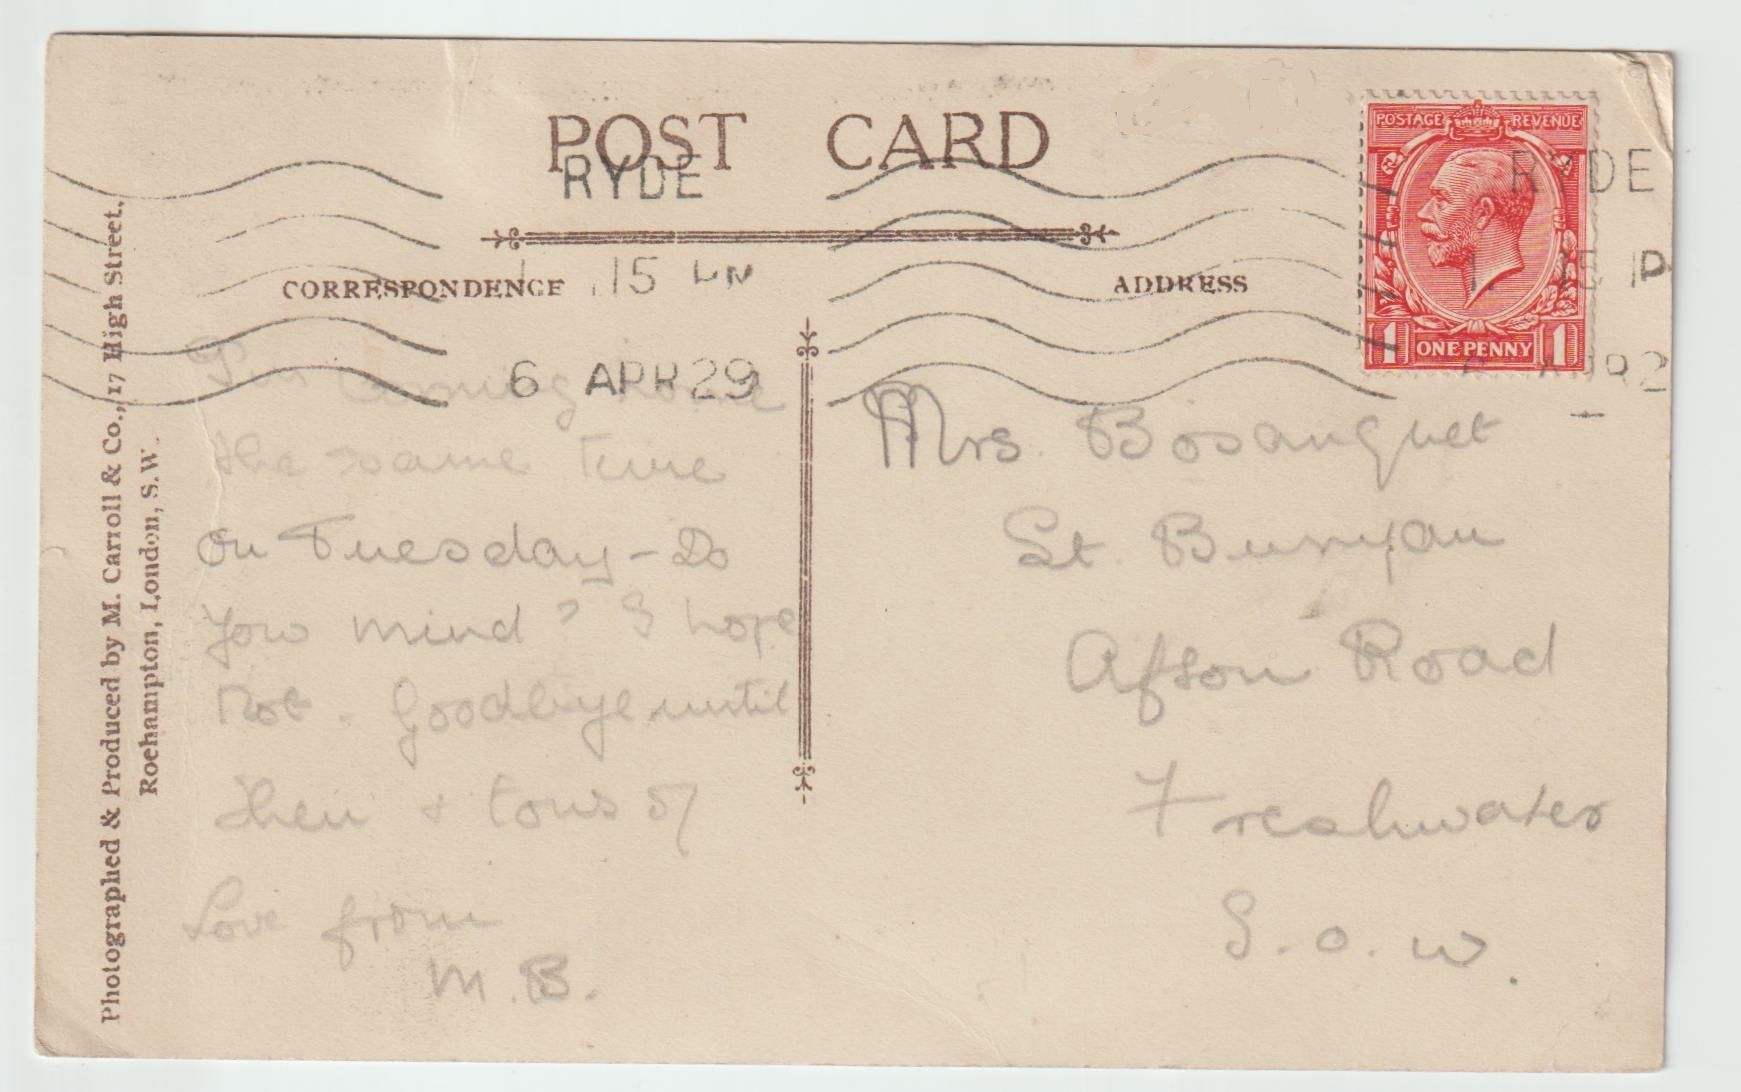 POST CARD
RYDE
CORRESPONDENCE
.15 PM
6 APR 29
ADDRESS
POSTAGE REVENUE
1 ONE PENNY 1
RYDE
15 P
APR 2
I'm coming home
the same time
on Tuesday - Do
you mind? I hope
not. Goodbye until
then & tons of
Love from
M.B.
Mrs. Bosanquet
St. Bunyan
Afton Road
Freshwater
I.O.W.
Photographed & Produced by M. Carroll & Co., 17 High Street,
Roehampton, London, S.W.